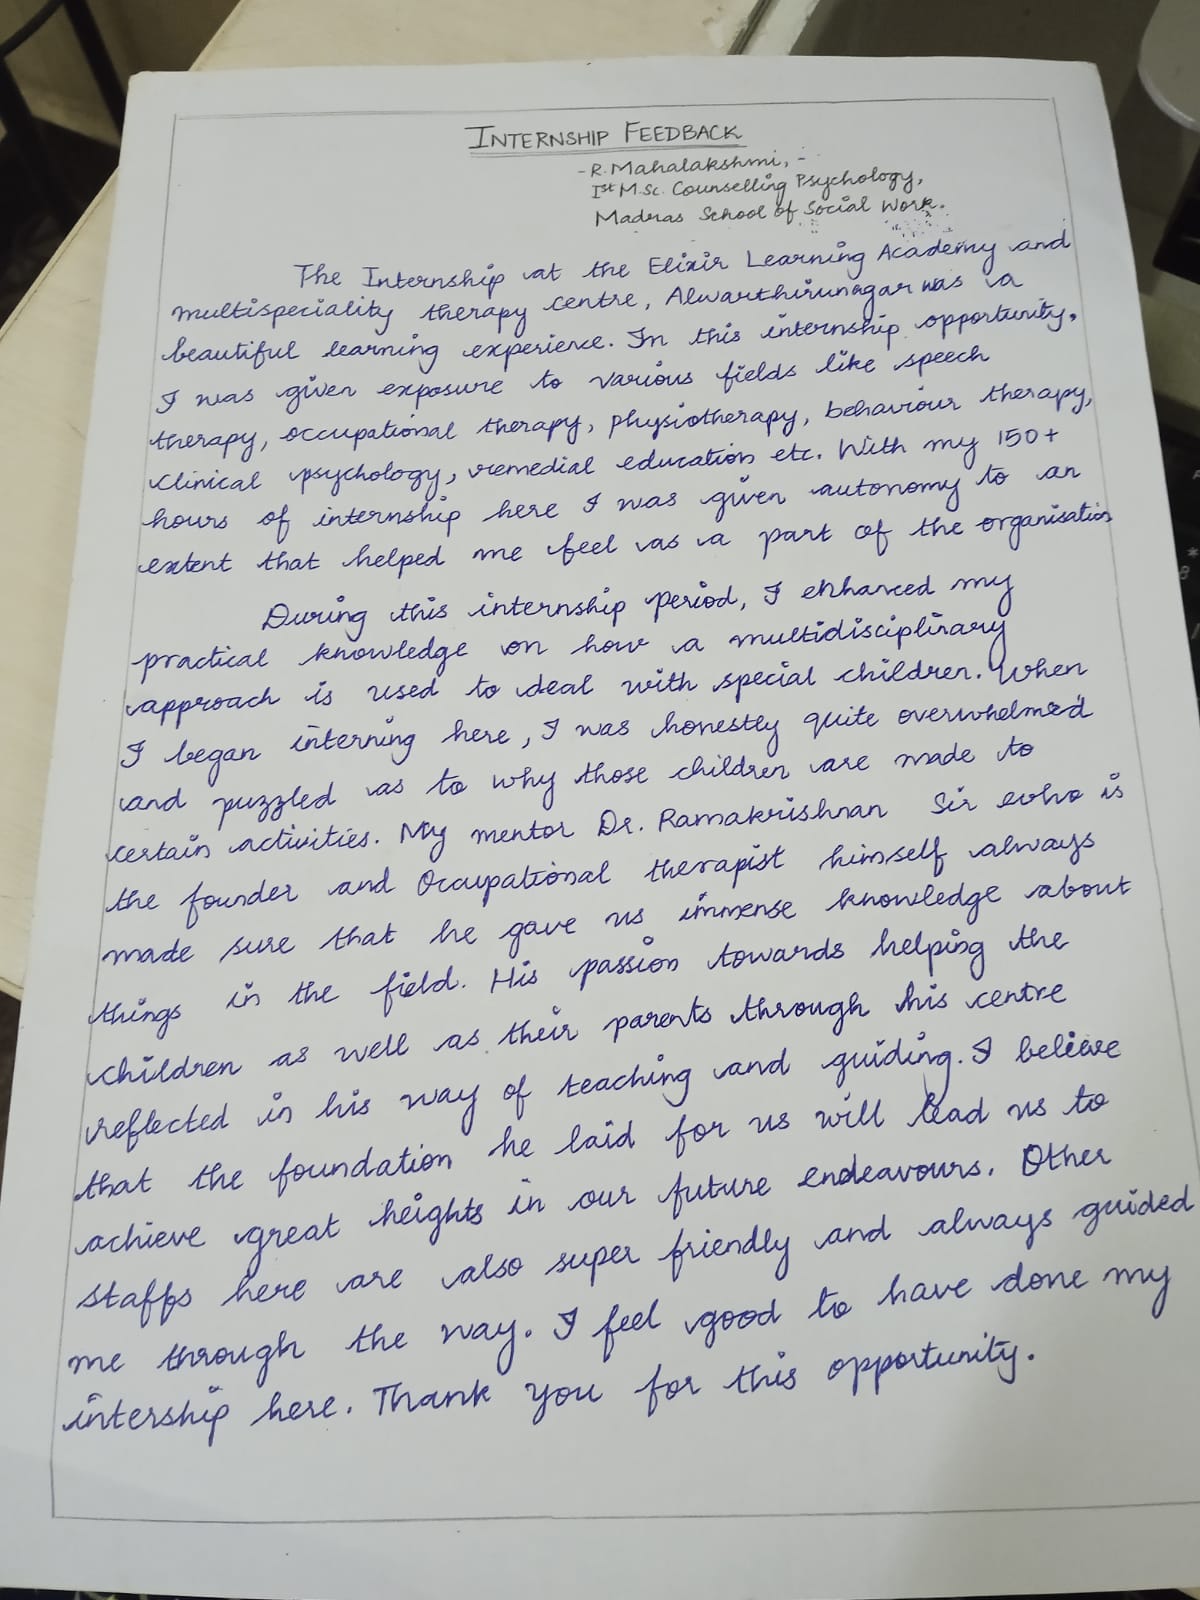 INTERNSHIP FEEDBACK
- R. Mahalakshmi, -
Ist M.Sc. Counselling Psychology,
Madras School of Social Work.
The Internship at the Elixir Learning Academy and
multispeciality therapy centre, Alwarthirunagar was a
beautiful learning experience. In this internship opportunity,
I was given exposure to various fields like speech
therapy, occupational therapy, physiotherapy, behaviour therapy,
clinical psychology, remedial education etc. With my 150+
hours of internship here I was given autonomy to an
extent that helped me feel as a part of the organisation
During this internship period, I enhanced my
practical knowledge on how a multidisciplinary
approach is used to deal with special children. When
I began interning here, I was honestly quite overwhelmed
and puzzled as to why those children are made to
certain activities. My mentor Dr. Ramakrishnan Sir who is
the founder and Occupational therapist himself always
made sure that he gave us immense knowledge about
things in the field. His passion towards helping the
children as well as their parents through his centre
reflected in his way of teaching and guiding. I believe
that the foundation he laid for us will lead us to
achieve great heights in our future endeavours. Other
staffs here are also super friendly and always guided
me through the way. I feel good to have done my
intership here. Thank you for this opportunity.